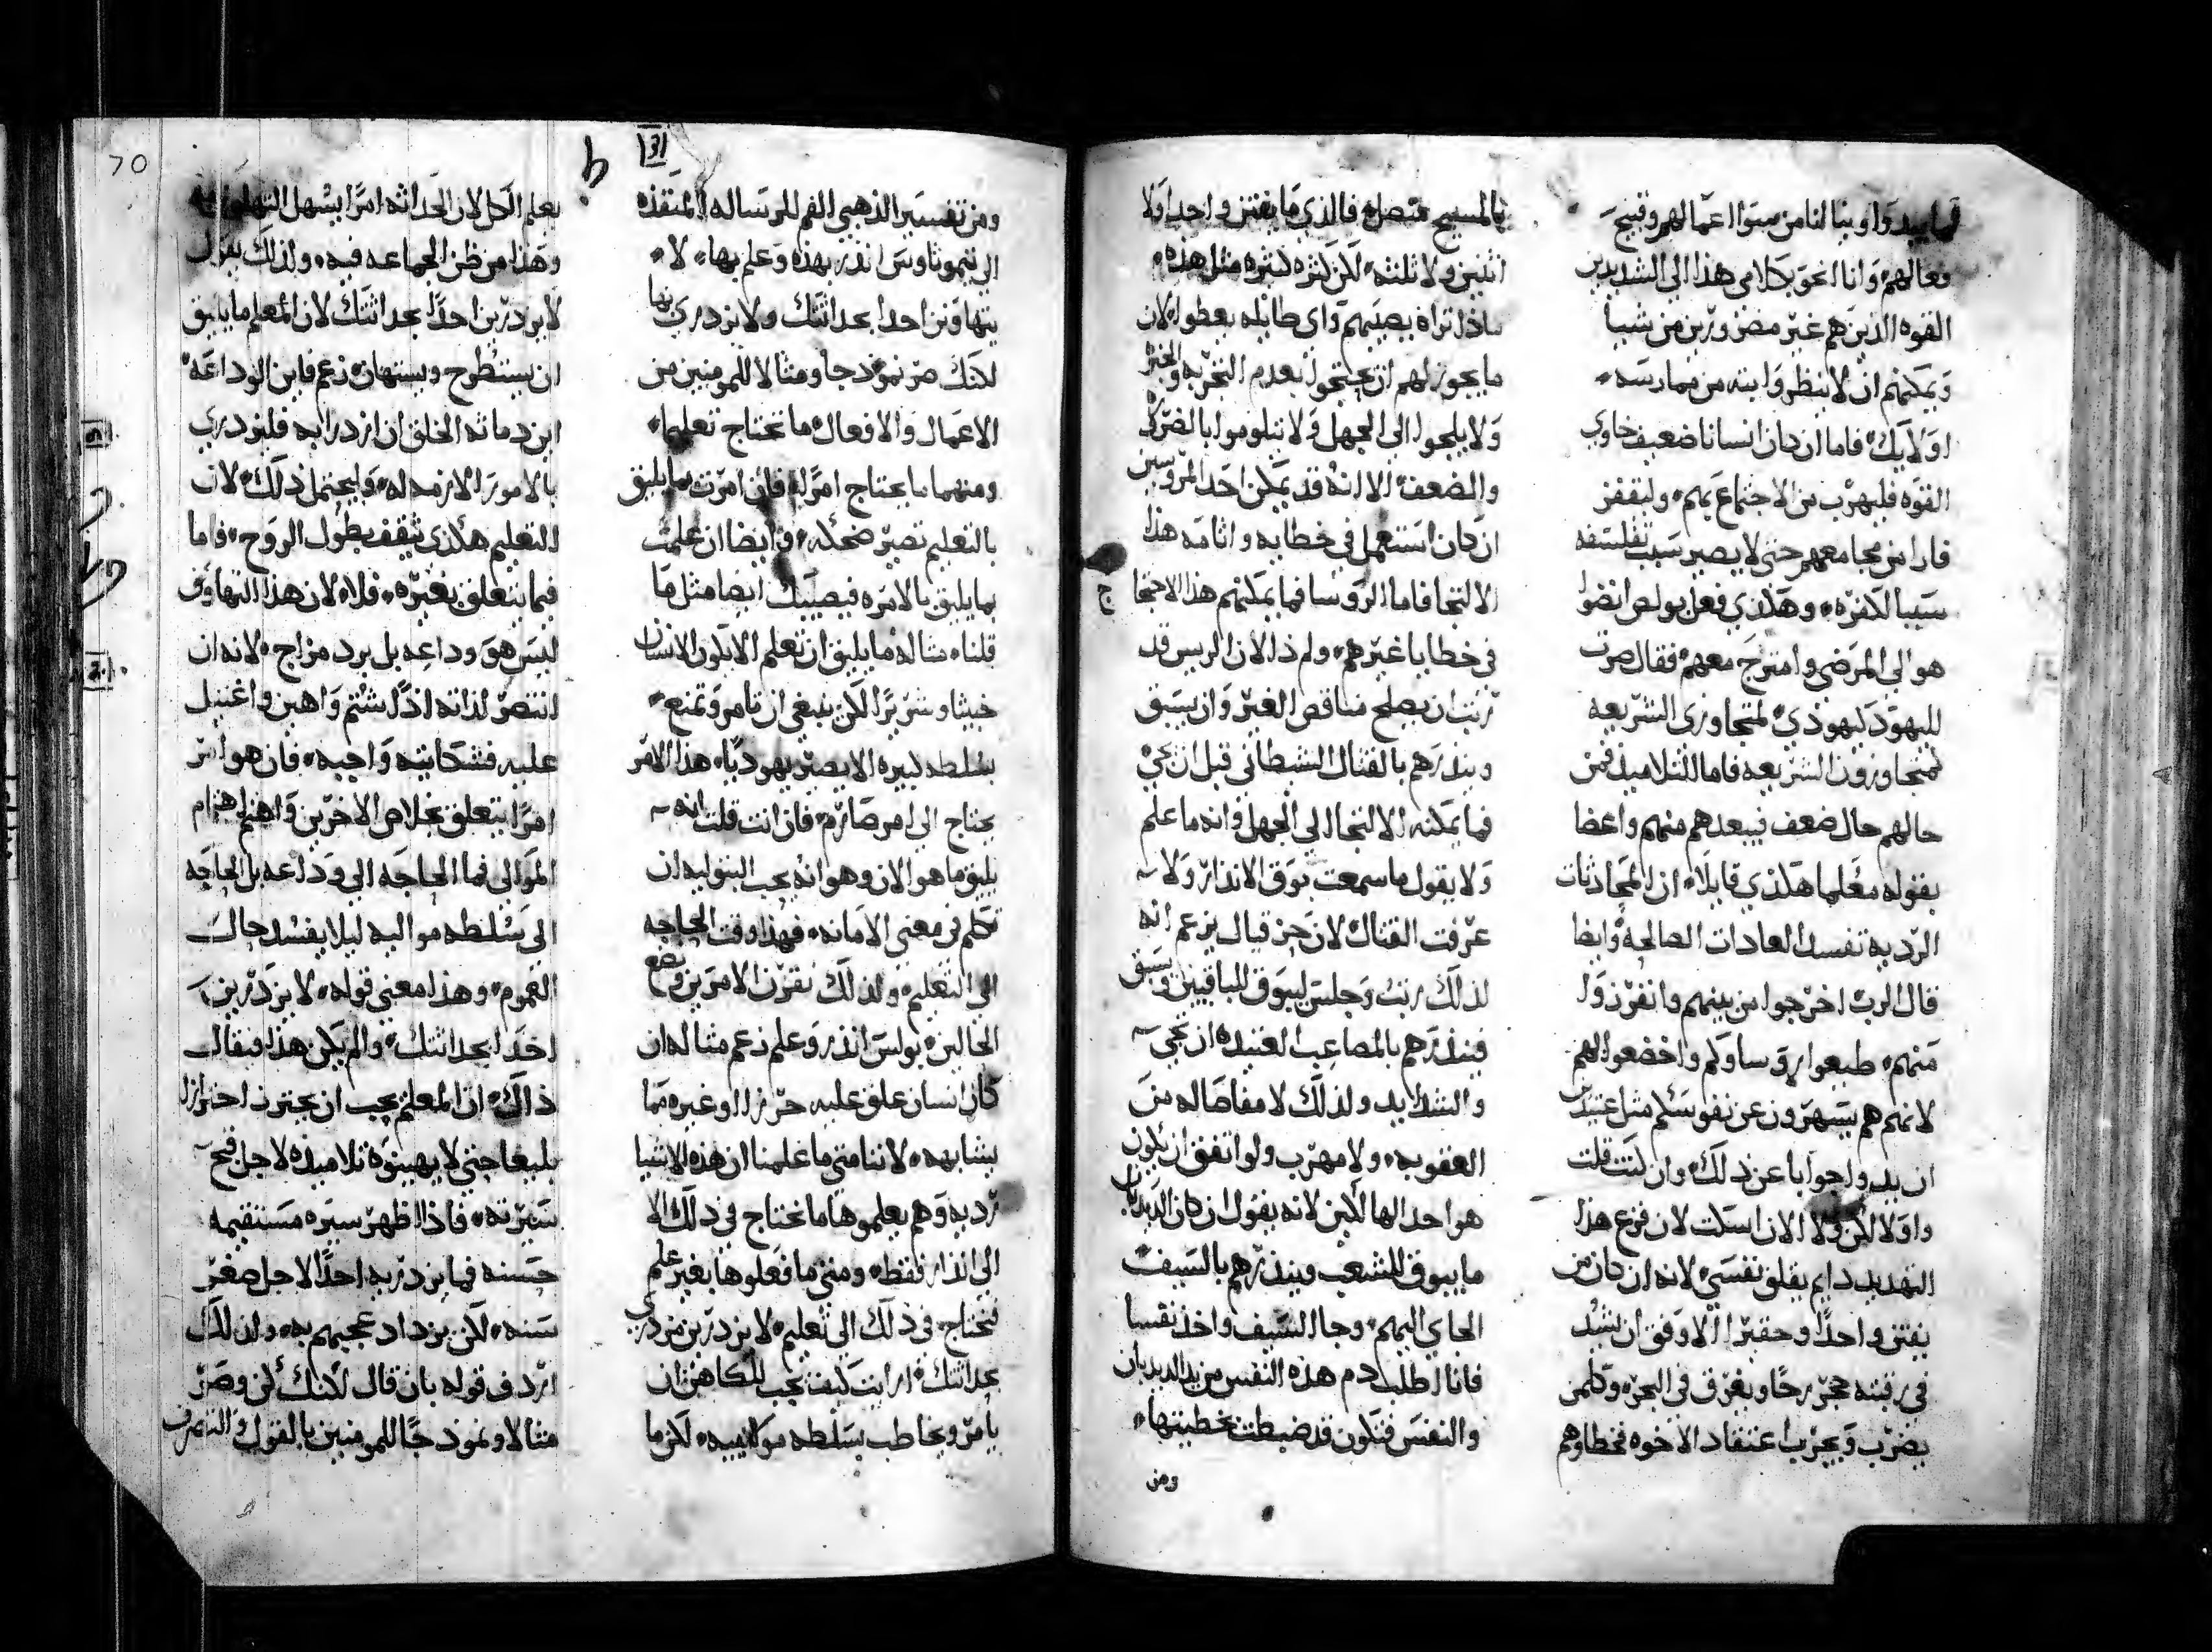 فعالهم وانا انحو بكلامي هذا الى الشديدين
القوه الذين هم غير مضرورين من شيا
ويمكنهم ان لا ينظروا بته من ممارسه
اولايك فاما ان كان انسانا ضعيف حاوي
القوه فليهرب من الاجتماع بهم وليقفز
فارا من مجامعهم حتى لا يصير سبب تفلسفه
سببا لكفره وهكذي فعل بولص انضوا
هو الى المرضى وامتزج معهم فقال صرت
لليهود ليهودي لمتجاوزي الشريعه
لمتجاوزون الشريعه فاما التلاميذ فمن
حالهم حال ضعف فيبعدهم منهم واعضا
بقوله معلما هكذي قايلا ان المحادثات
الرديه تفسد العادات الصالحه وايضا
قال الرب اخرجوا من بينهم وانفرزوا
منهم طيعوا روساوكم واخضعوا لهم
لانهم هم يسهرون عن نفوسكم مثل عتيدين
ان يدوا جوابا عن ذلك وان كنت قلت
واولا لكن ولا الان اسكت لان فزع هذا
التهديد دايم يقلق نفسي لانه ان كان من
يفتن واحدا وحقيرا الاوفق ان يشد
في رقبته حجر رحا ويغرق في البحر وكلمن
يضرب ويجرب اعتقاد الاخوه فخطاوهم
بالمسيح متصله فالذي ما يفتن واحدا ولا
اثنين ولا ثلثه لكن كثره كثيره مثل هذه
ماذا تراه يصيبهم واي طايله يعطوا لان
ما يجوز لهم ان يحتجوا بعدم التجربه والخبره
ولا يلجوا الى الجهل ولا يتلوموا بالضروره
والضعف الا انه قد يمكن احد المروسين
ان كان استعمل في خطايه واثامه هذا
الالتجا فاما الروسا فما يمكنهم هذا الاحتجا
في خطايا غيرهم ولم ذا لان الريس قد
رتب ان يصلح مناقص الغير وان يسبق
وينذرهم بالقتال الشيطاني قبل ان يجي
فما يمكنه الالتجا الى الجهل وانه ما علم
ولا يقول ما سمعت بوق الانذار ولا
عرفت القتال لان حزقيال يزعم انه
لذلك رتب وجلس ليبوق للباقيين ويسبق
فينذرهم بالمصاعب العتيده ان تجي
والشدايد ولذلك لا مفاصاله من
العقوبه ولا مهرب ولو اتفق ان يكون
هو احد الهالكين لانه يقول ان كان الديدبان
ما يبوق للشعب وينذرهم بالسيف
الجاي اليهم وجا السيف واخذ نفسا
فانا اطلب دم هذه النفس من يد الديدبان
والنفس فتكون قد ضبطت بخطيتها
ومن
70
ومن تفسير الذهبي الفم للرساله المنقذه
الى تيموثاوس انذر بهذه وعلم بها لا
يتهاونن احدا بحداثتك ولا يزدري بها
لكنك صر نموذجا ومثالا للمومنين من
الاعمال والافعال ما تحتاج تعليما
ومنهما ما يحتاج امرا فان امرت بما يليق
بالتعليم تصير ضحكه وايضا ان علمت
بما يليق بالامره فيصيبك ايضا مثل ما
قلنا مثاله ما يليق ان تعلم الا يكون الانسان
خبيثا وشريرا لكن ينبغي ان تامر وتمنع
بسلطه كبيره الا يصير يهوديا هذا الامر
يحتاج الى امر صارم فان انت قلت انه
يليق ما هو الان وهو انه يجب البتوليه ان
تكلم في معنى الامانه فهذا وقت الحاجه
الى التعليم ولذلك نقرن الامرين ونضع
الحالين بولس انذر وعلم زعم مثاله ان
كان انسان علق عليه حرزا او غيره مما
يشابهه لاننا متى ما علمنا ان هذه الاشيا
رديه وهم يعلموها ما نحتاج في ذلك الا
الى انذار فقط ومتى ما فعلوها بغير علم
فنحتاج في ذلك الى تعليم لا يزدرين مزدري
بحداثتك ارايت كيف يجب للكاهن ان
يامر ويخاطب بسلطه موالييه لكن ما
يعلم الكل لان الحداثه امرا يسهل التهاون به
وهذا من ظن الجماعه فيه ولذلك يقول
لا يزدرين احدا بحداثتك لان المعلم ما يليق
ان يستطرح ويستهان زعم فاين الوداعه
اين دماثه الخلق ان ازدرا به فليزدري
بالامور اللازمه له وليحتمل ذلك لان
التعليم هكذي يثقف بطول الروح فاما
فيما يتعلق بغيره فلا لان هذا التهاون
ليس هو وداعه بل برد مزاج لانه ان
انتصر لذاته اذا شتم واهين واغتيل
عليه فشكايته واجبه فان هو امر
امرا يتعلق بخلاص الاخرين واهتم اهتمام
الموالي فما الحاجه الى وداعه بل الحاجه
الى سلطه مواليه ليلا يفسد حال
العموم وهذا معنى قوله لا يزدرين
احدا بحداثتك والم يكن هذا فيقال
ذاك ان المعلم يجب ان يحترز احترازا
بليغا حتى لا يهينوه تلاميذه لاجل قبح
سيرته فاذا ظهر سيره مستقيمه
حسنه فما يزدر به احدا لاجل صغر
سنه لكن يزداد عجبهم به ولذلك
اردف قوله بان قال لكنك كن وصر
مثالا ونموذجا للمومنين بالقول والتصرف